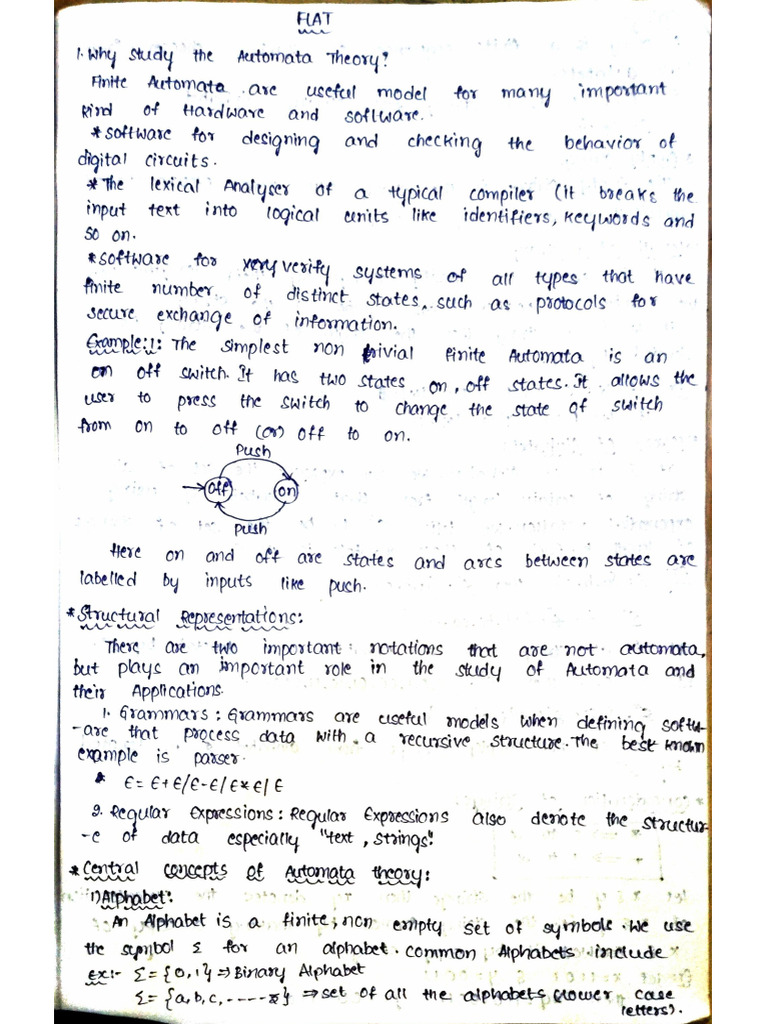 FLAT
1. Why study the Automata Theory?
Finite Automata are useful model for many important
kind of Hardware and software.
* software for designing and checking the behavior of
digital circuits.
* The lexical Analyser of a typical compiler (it breaks the
input text into logical units like identifiers, keywords and
so on.
* software for verify systems of all types that have
finite number of distinct states, such as protocols for
secure exchange of information.
Example:1: The simplest non trivial finite Automata is an
on off switch. It has two states on, off states. It allows the
user to press the switch to change the state of switch
from on to off (or) off to on.
Push
off on
Push
Here on and off are states and arcs between states are
labelled by inputs like push.
* Structural Representations:
There are two important notations that are not automata,
but plays an important role in the study of Automata and
their Applications.
1. Grammars: Grammars are useful models when defining softw-
-are that process data with a recursive structure. The best known
example is parser.
* E = E+E/E-E/E*E/E
2. Regular Expressions: Regular Expressions also denote the structur-
-e of data especially "text, strings".
* Central concepts of Automata theory:
1) Alphabet:
An Alphabet is a finite, non empty set of symbols. We use
the symbol Σ for an alphabet. common Alphabets include
Ex:- Σ = {0,1} ⇒ Binary Alphabet
Σ = {a,b,c,-----z} ⇒ set of all the alphabets (lower case
letters).